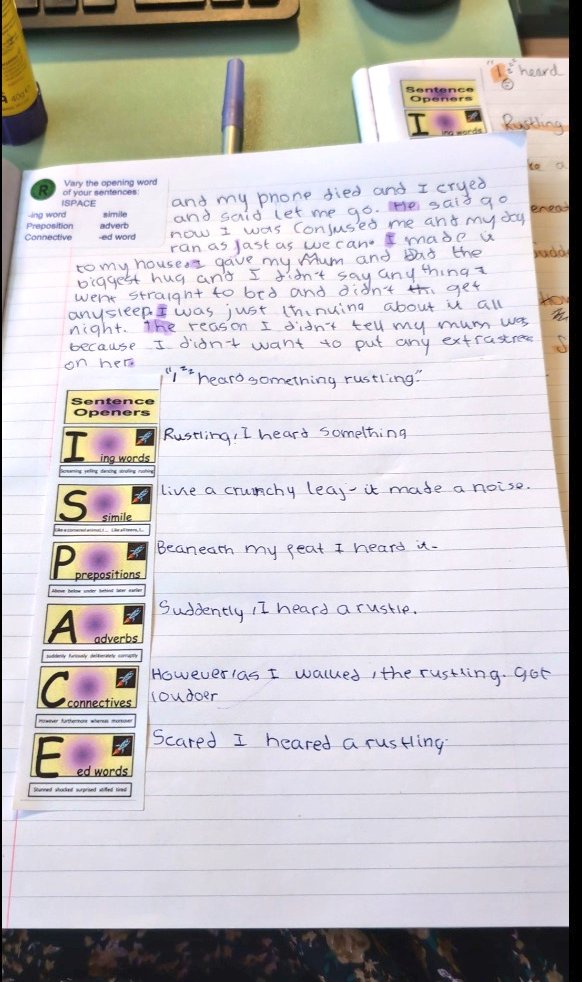 40g
"I" heard
Sentence
Openers
I
ing words
Rustling
R
Vary the opening word
of your sentences:
ISPACE
-ing word simile
Preposition adverb
Connective -ed word
and my phone died and I cryed
and said let me go. He said go
now I was confused me and my dog
ran as fast as we can. I made it
to my house. I gave my Mum and Dad the
biggest hug and I didn't say anything I
went straight to bed and didn't get
any sleep. I was just thinking about it all
night. The reason I didn't tell my mum was
because I didn't want to put any extra stress
on her.
"I" heard something rustling."
Sentence
Openers
I ing words
Rustling, I heard something
Screaming yelling dancing strolling rushing
S simile
like a crunchy leaf - it made a noise.
P prepositions
Beaneath my feat I heard it.
Above below under behind later earlier
A adverbs
Suddently, I heard a rustle.
suddenly furiously deliberately corruptly
C connectives
However, as I walked, the rustling. Got
loudoer
However furthermore whereas moreover
E ed words
Scared I heared a rustling.
Stunned shocked surprised stifled tired